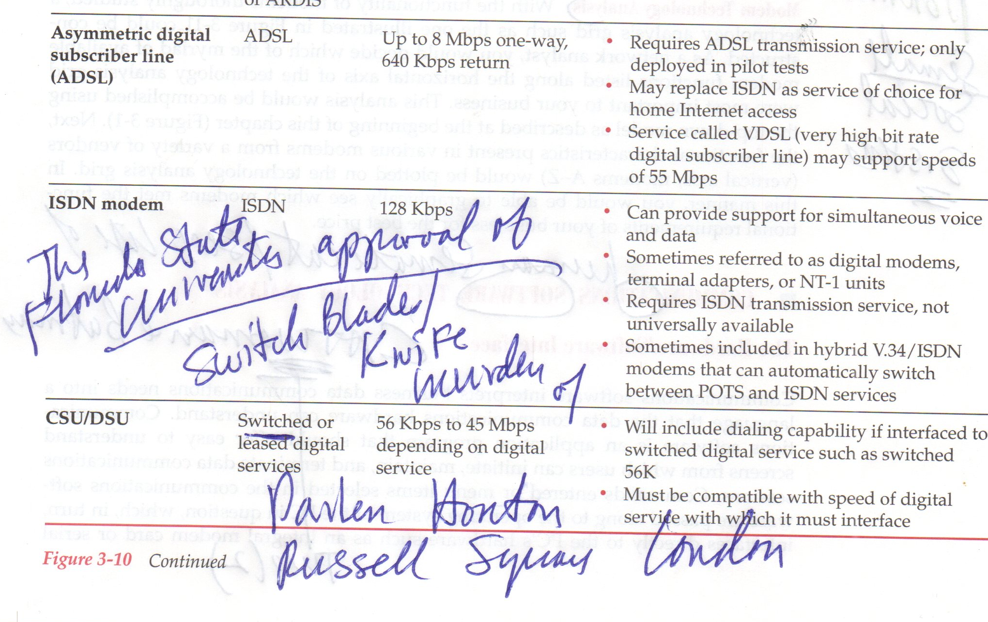 or ARDIS
Asymmetric digital subscriber line (ADSL)
ADSL
Up to 8 Mbps one-way, 640 Kbps return
• Requires ADSL transmission service; only
deployed in pilot tests
• May replace ISDN as service of choice for
home Internet access
• Service called VDSL (very high bit rate
digital subscriber line) may support speeds
of 55 Mbps
ISDN modem
ISDN
128 Kbps
• Can provide support for simultaneous voice
and data
• Sometimes referred to as digital modems,
terminal adapters, or NT-1 units
• Requires ISDN transmission service, not
universally available
• Sometimes included in hybrid V.34/ISDN
modems that can automatically switch
between POTS and ISDN services
The Florida State
approval of
Switch Blade/
Knife
murder of
CSU/DSU
Switched or
leased digital
services
56 Kbps to 45 Mbps
depending on digital
service
• Will include dialing capability if interfaced to
switched digital service such as switched
56K
• Must be compatible with speed of digital
service with which it must interface
Horton
Russell London
Figure 3-10 Continued